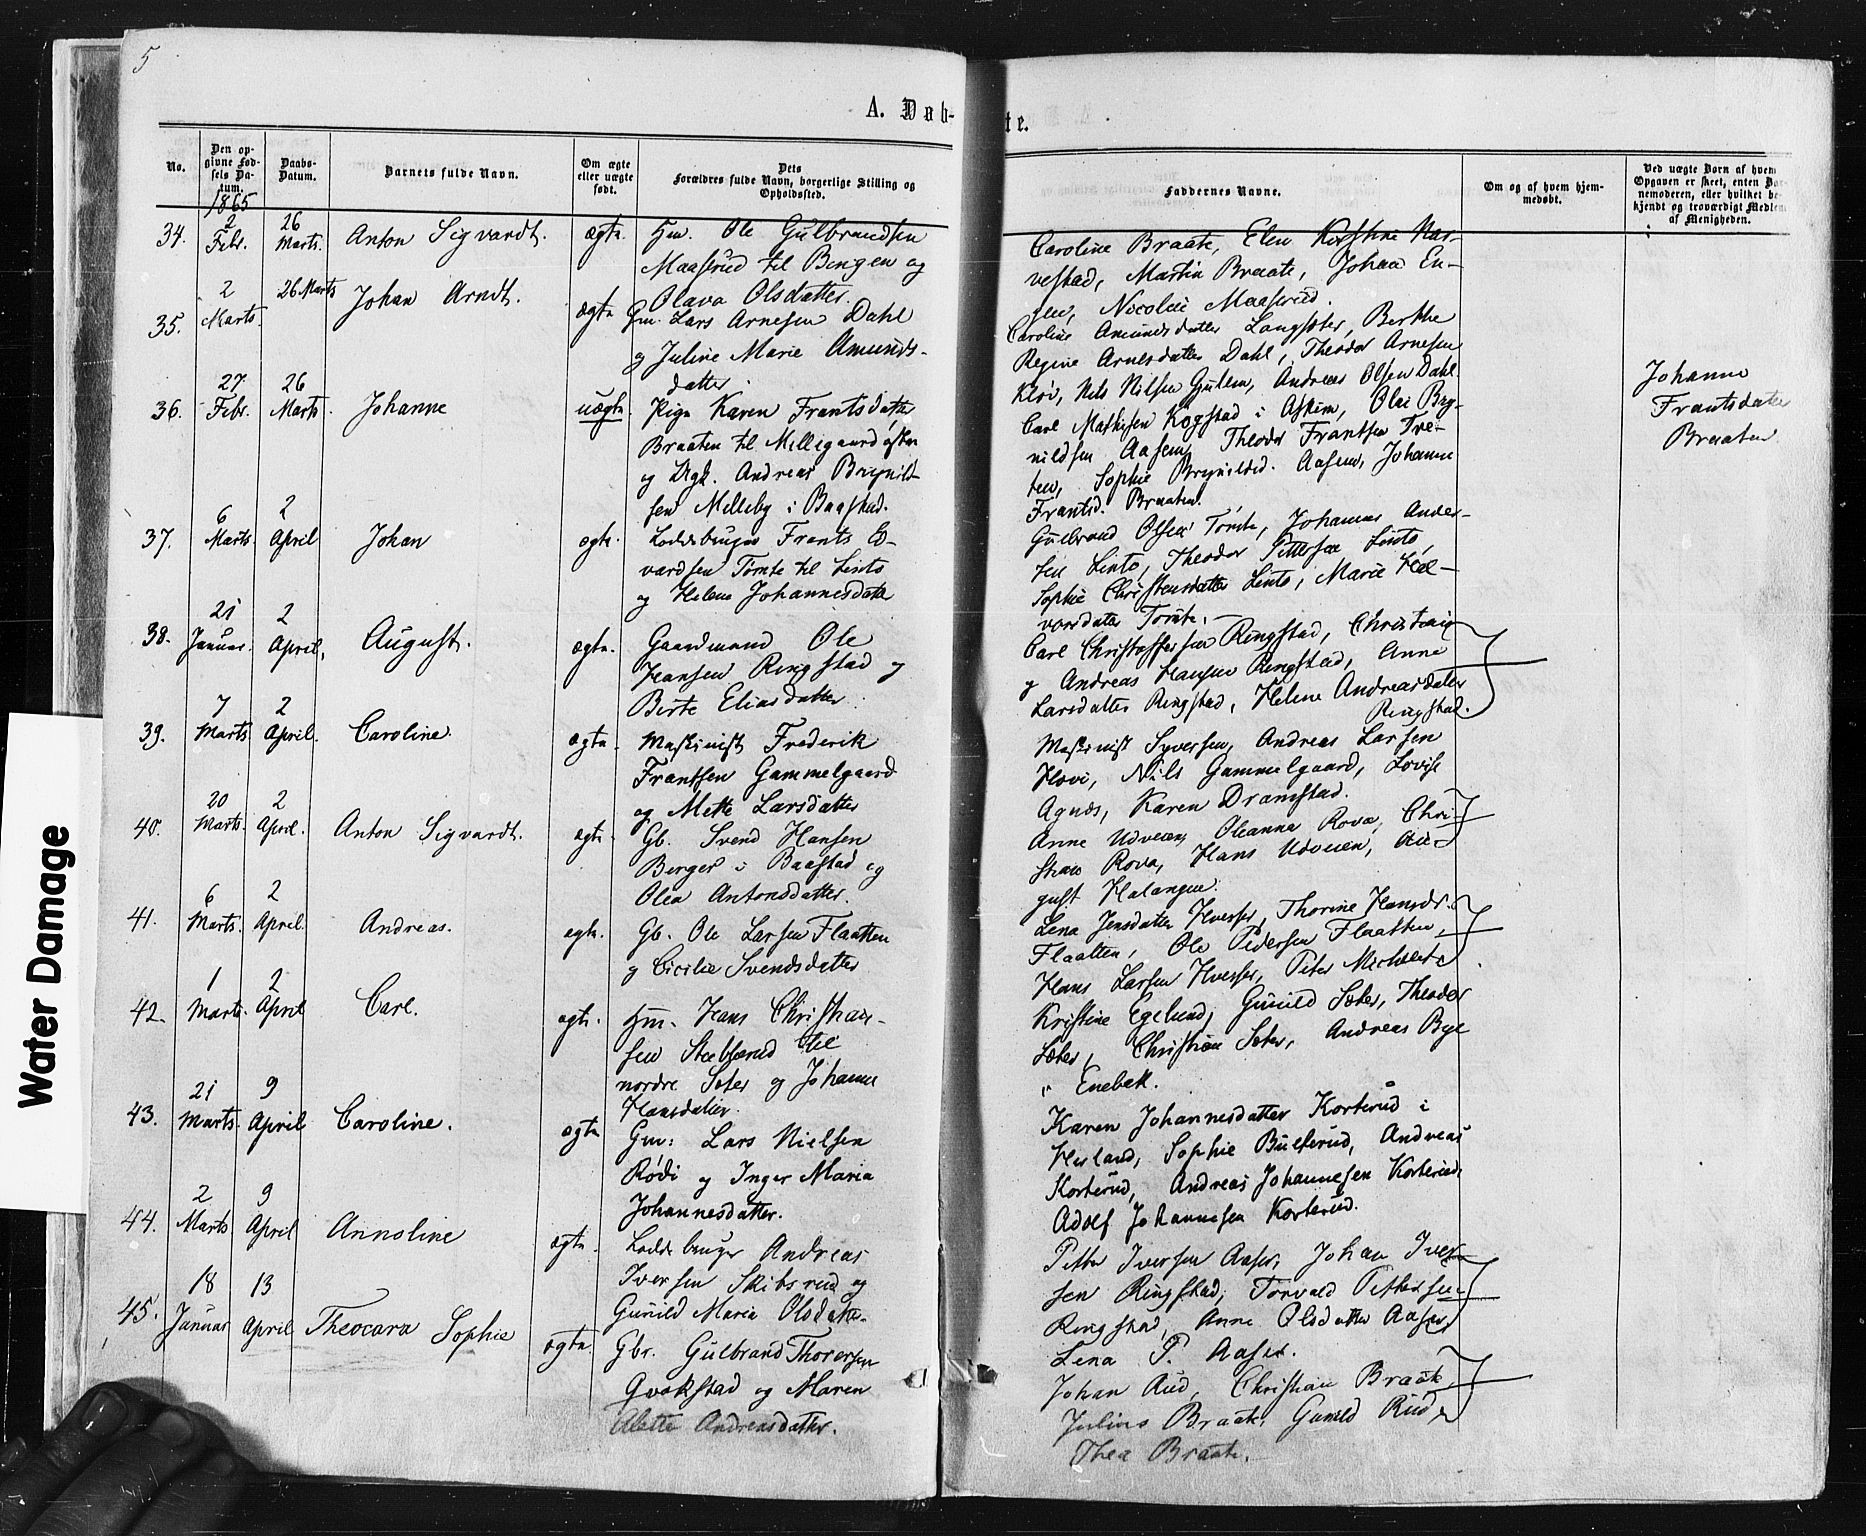 5
A. Døb-
te.
No.
Den op-
givne Fød-
sels Da-
tum.
1865
Daabs-
Datum.
Barnets fulde Navn.
Om ægte
eller uægte
født.
Dets
Forældres fulde Navn, borgerlige Stilling og
Opholdssted.
Faddernes Navne.
Om og af hvem hjem-
medøbt.
Ved uægte Børn af hvem
Opgaven er skeet, enten Bar-
nemoderen, eller hvilket be-
kjendt og troværdigt Medlem
af Menigheden.
34. 2 Febr. 26 Marts. Anton Sigvardt. ægte. Hm. Ole Gulbrandsen
Maaserud til Bingen og
Olava Olsdatter.
Caroline Braate, Elen Kirstine Nar-
vestad, Martin Braate, Johan En-
gen, Nicolai Maaserud.
35. 2 Marts. 26 Marts Johan Arndt. ægte Gm. Lars Arnesen Dahl
og Juline Marie Amunds-
datter.
Caroline Amundsdatter Langsæter, Berthe
Regine Arnesdatter Dahl, Theodor Arnesen
Kløv, Nils Nilsen Gjulem, Andreas Olsen Dahl.
36. 27 Febr. 26 Marts. Johanne uægte. Pige Karen Frantsdatter
Braaten til Millegaard østre
og Ungk. Andreas Brynild-
sen Melleby i Baastad.
Carl Mathisen Kogstad i Askim, Olai Bry-
nildsen Aasen, Theodor Frantsen Tve-
ten, Sophie Brynildsd. Aasen, Johanne
Frantsd. Braaten.
Johanne
Frantsdatter
Braaten
37. 6 Marts. 2 April Johan ægte. Loddebruger Frants Ed-
vardsen Tømte til Linto
og Helene Johannesdatter
Gulbrand Olsen Tømte, Johannes Ander-
sen Linto, Theodor Pettersen Linto,
Sophie Christensdatter Linto, Marie Hal-
vorsdatter Tømte.
38. 21 Januar. 2 April. August. ægte. Gaardmand Ole
Hansen Ringstad og
Birte Eliasdatter.
Carl Christoffersen Ringstad, Christian
og Andreas Hansen Ringstad, Anne
Larsdatter Ringstad, Helene Andreasdatter
Ringstad.
39. 7 Marts 2 April. Caroline. ægte. Maskinist Frederik
Frantsen Gammelgaard
og Mette Larsdatter
Maskinist Syversen, Andreas Larsen
Hovi, Nils Gammelgaard, Lovise
Agnæs, Karen Dramstad.
40. 20 Marts. 2 April. Anton Sigvardt. ægte. Gb. Svend Hansen
Berger i Baastad og
Olea Antonsdatter.
Anne Udveien, Oleanna Rova, Chri-
stian Rova, Hans Udveien, Au-
gust Halangen.
41. 6 Marts. 2 April. Andreas. ægte. Gb. Ole Larsen Flaatten
og Cicilie Svendsdatter
Lena Jensdatter Hverser, Thorine Hansdr.
Flaatten, Ole Pedersen Flaatten,
Hans Larsen Hverser, Peter
42. 1 Marts. 2 April Carl. ægte. Hm. Hans Christian-
sen til
nordre Sæter og Johanne
Hansdatter.
Kristine Egelund, Gunild Sæter, Theodor
Sæter, Christian Sæter, Andreas Bye
i Enebak.
43. 21 Marts. 9 April Caroline. ægte Gm: Lars Nielsen
Rødi og Inger Maria
Johannesdatter.
Karen Johannesdatter Korterud i
Herland, Sophie Bullerud, Andreas
Korterud, Andreas Johannesen Korterud,
Adolf Johannesen Korterud.
44. 2 Marts 9 April Annoline ægte. Loddebruger Andreas
Iversen Skibsrud og
Gunild Maria Olsdatter.
Petter Iversen Aaser, Johan Iver-
sen Ringstad, Torvald Pettersen
Ringstad, Anne Olsdatter Aaser,
Lena P. Aaser.
45. 18 Januar 13 April Theocara Sophie ægte. Gbr. Gulbrand Thoresen
Qvakstad og Maren
Alette Andreasdatter.
Johan Rud, Christian Braate,
Julius Braate, Gunild Rud,
Thea Braate.
Water Damage